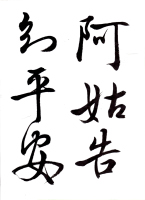 阿姑告
平安